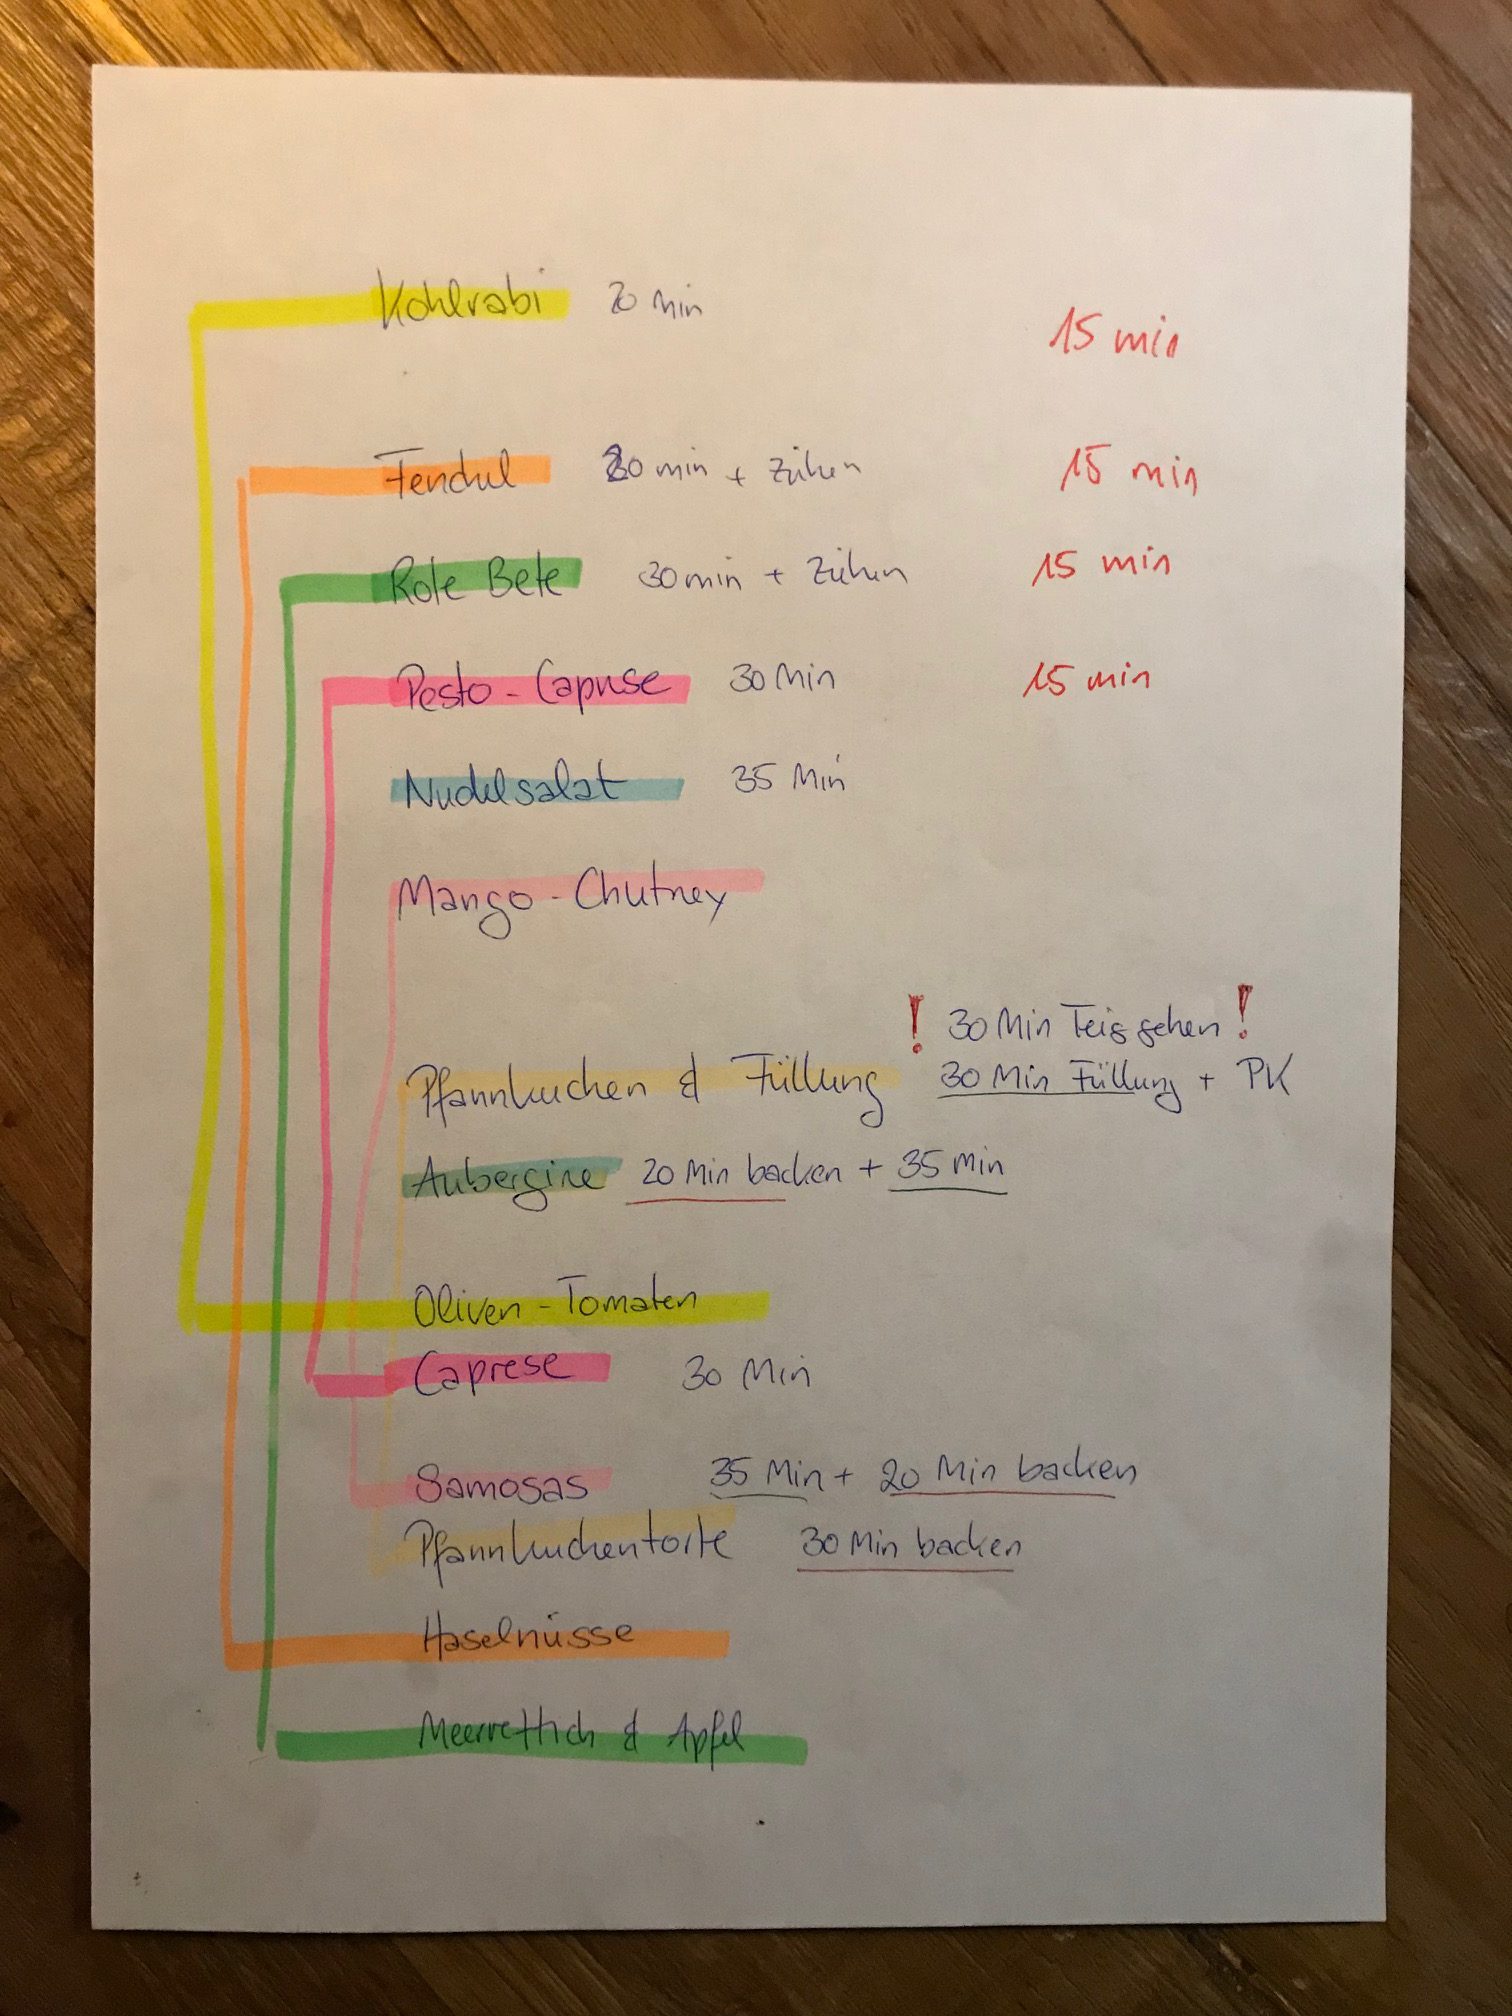 Kohlrabi 20 Min 15 min
Fenchel 20 min + ziehen 15 min
Rote Bete 30 min + ziehen 15 min
Pesto - Caprese 30 Min 15 min
Nudelsalat 35 Min
Mango - Chutney
! 30 Min Teig gehen !
Pfannkuchen & Füllung 30 Min Füllung + PK
Aubergine 20 Min backen + 35 min
Oliven - Tomaten
Caprese 30 Min
Samosas 35 Min + 20 Min backen
Pfannkuchentorte 30 Min backen
Haselnüsse
Meerrettich & Apfel